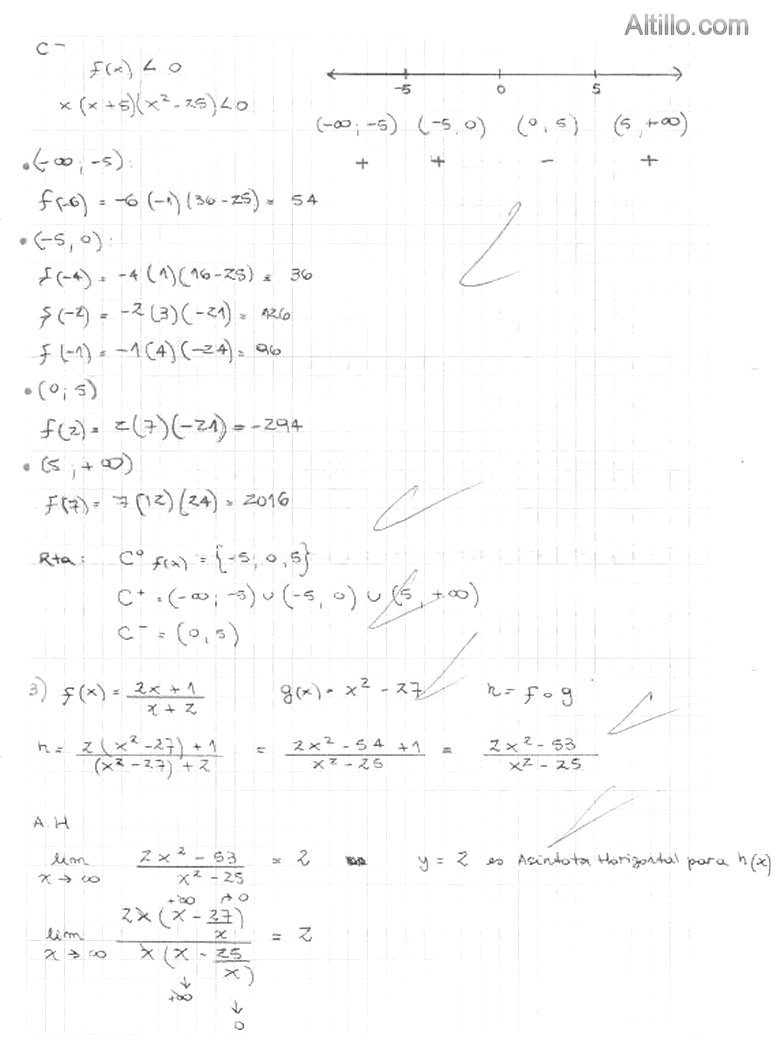 Altillo.com
C⁻
f(x) < 0
x(x+5)(x²-25)<0
-5 0 5
(-∞; -5) (-5, 0) (0, 5) (5, +∞)
+ + - +
• (-∞, -5):
f(-6) = -6(-1)(36-25) = 54
• (-5, 0):
f(-4) = -4(1)(16-25) = 36
f(-2) = -2(3)(-21) = 126
f(-1) = -1(4)(-24) = 96
• (0; 5)
f(2) = 2(7)(-21) = -294
• (5, +∞)
f(7) = 7(12)(24) = 2016
Rta: C⁰ f(x) = {-5, 0, 5}
C⁺ = (-∞, -5) ∪ (-5, 0) ∪ (5, +∞)
C⁻ = (0, 5)
3) f(x) = (2x+1)/(x+2) g(x) = x² - 27 h = f∘g
h = (2(x²-27)+1)/((x²-27)+2) = (2x² - 54 + 1)/(x² - 25) = (2x² - 53)/(x² - 25)
A.H
lim x→∞ (2x² - 53)/(x² - 25) = 2 y = 2 es Asíntota Horizontal para h(x)
+∞ → 0
lim x→∞ (2x(x - 27/x))/(x(x - 25/x)) = 2
↓ +∞
↓ 0